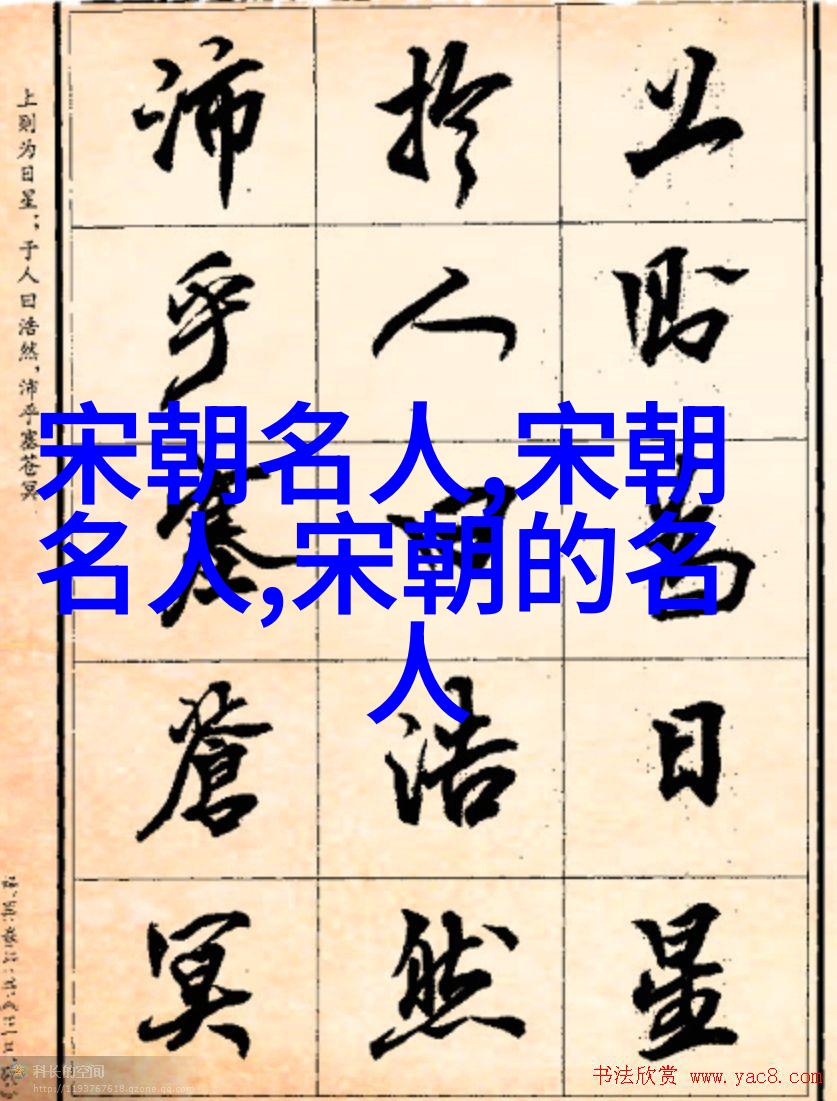 上则为日星；于人曰浩然，沛乎塞苍冥
上則為日星
於人曰浩然
沛乎塞蒼冥
宋朝名人,宋朝
名人,宋朝的名
人
科长的空间
http://1193767618.qzone.qq.com
书法欣赏 www.yac8.com